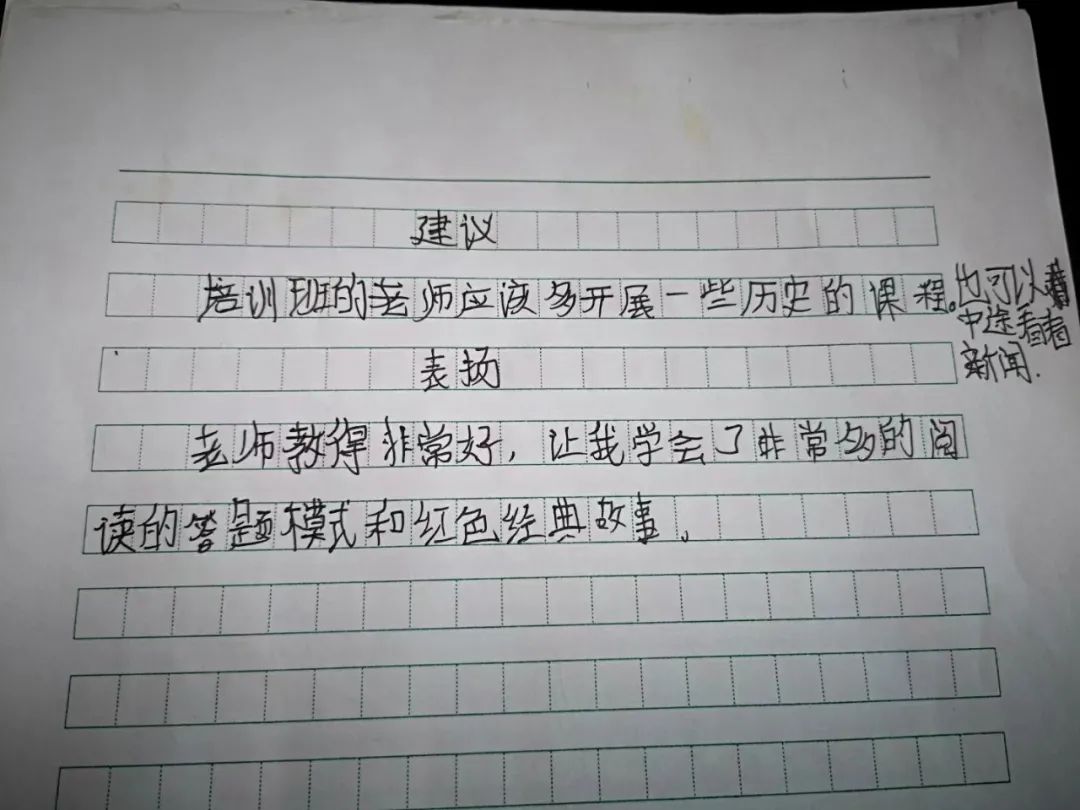 建议
培训班的老师应该多开展一些历史的课程。也可以
中途看看
新闻.
表扬
老师教得非常好，让我学会了非常多的阅
读的答题模式和红色经典故事。